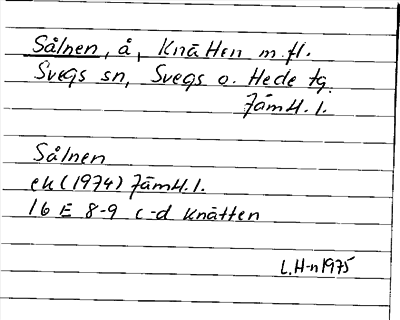 Sålnen, å, Knätten m.fl.
Svegs sn, Svegs o. Hede tg.
Jämtl. l.
Sålnen
ek (1974) Jämtl. l.
16 E 8-9 c-d Knätten
L.H-n 1975